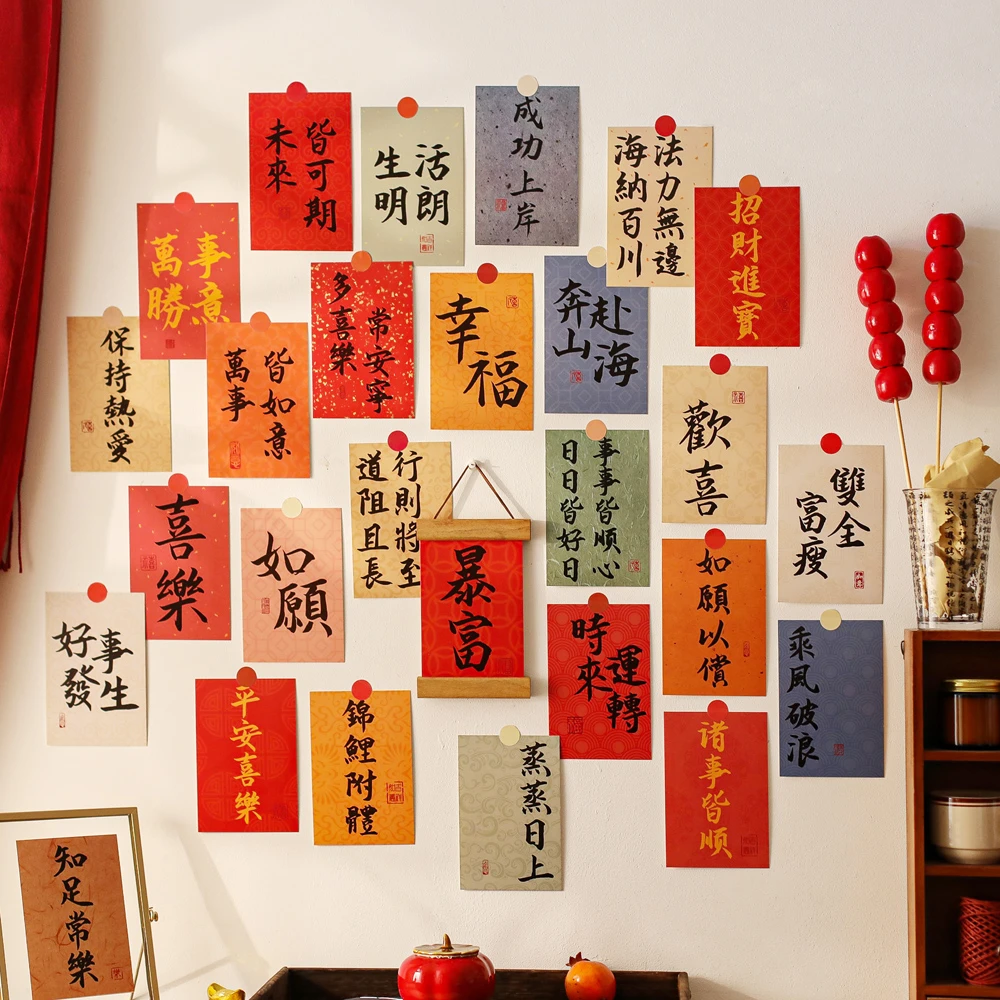 皆可期
未來
活朗
生明
成功上岸
法力無邊
海納百川
招財進寶
事意
萬勝
常安寧
多喜樂
幸福
赴海
奔山
保持熱愛
皆如意
萬事
歡喜
行則將至
道阻且長
事事皆順心
日日皆好日
雙全
富瘦
喜樂
如願
暴富
如願以償
事生
好發
運轉
時來
乘風破浪
平安喜樂
錦鯉附體
蒸蒸日上
诸事皆顺
知足常樂